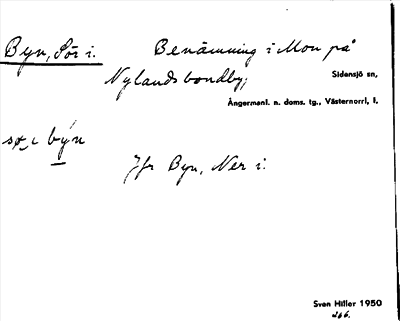 Byn, Sör i. Benämning i Mon på
Nylandsbondby;
Sidensjö sn,
Ångermanl. n. doms. tg., Västernorrl, l.
sø̜ ı býn
Jfr Byn, Ner i.
Sven Hiller 1950
266.